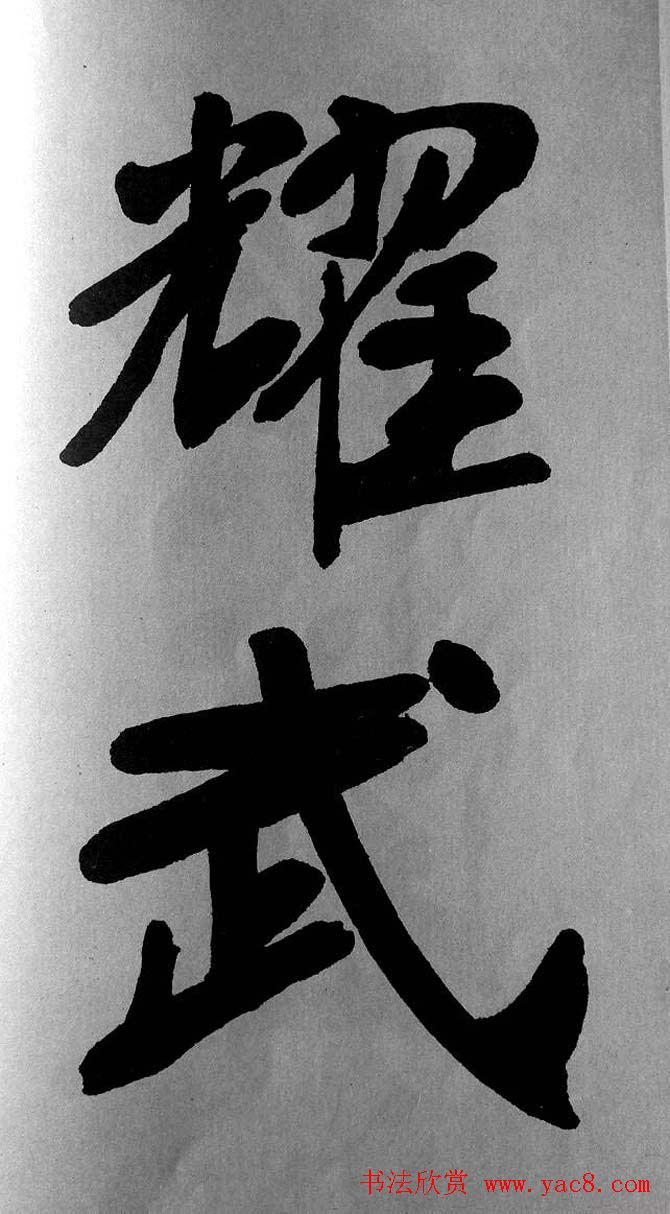 耀
武
书法欣赏 www.yac8.com